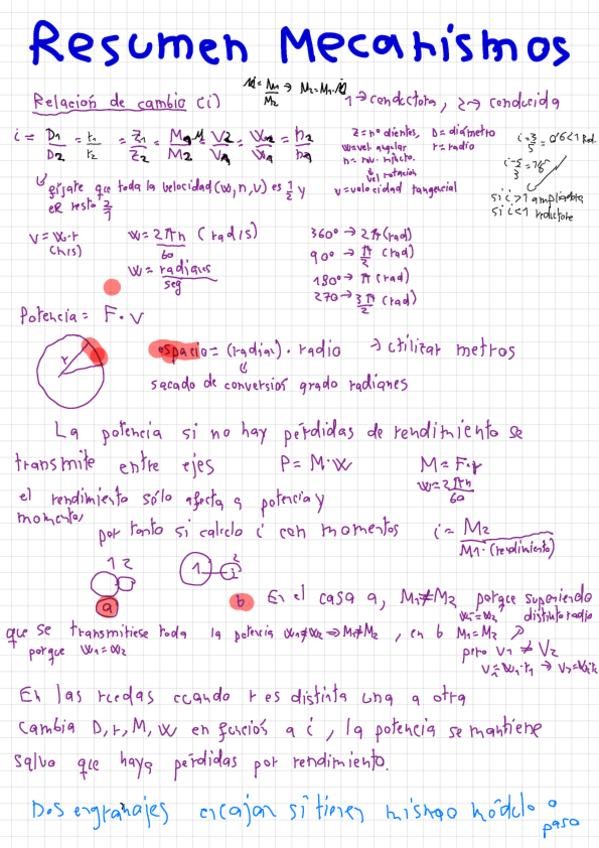 Resumen Mecanismos
Relación de cambio (i)
1→conductora, 2→ conducida
i = D1/D2 = r1/r2 = Z1/Z2 = M1/M2 = V2/V1 = W2/W1 = n2/n1
Z = nº dientes, D = diámetro
w = vel angular r = radio
vel rotacion
v = velocidad tangencial
i=3/5 = 0'6<1 Red.
si i>1 ampliadora
si i<1 reductora
fijate que toda la velocidad (w,n,v) es 1/2 y
el resto 2/1
V = w·r
w = 2πn/60 (rad/s)
w = radianes/seg
360º → 2π (rad)
90º → π/2 (rad)
180º → π (rad)
270 → 3π/2 (rad)
Potencia = F·v
r
espacio = (radian) · radio → utilizar metros
sacado de conversión grado radianes
La potencia si no hay pérdidas de rendimiento se
transmite entre ejes P = M·W M = F·r
w = 2πn/60
el rendimiento sólo afecta a potencia y
momento,
por tanto si calculo i con momentos i = M2/M1·(rendimiento)
1 2
1 2
a
b En el caso a, M1≠M2 porque suponiendo
distinto radio
que se transmitiese toda la potencia w1≠w2 ⇒ M1≠M2, en b M1=M2
porque w1=w2
pero V1 ≠ V2
En las ruedas cuando r es distinta una a otra
cambia D, r, M, W en función a i, la potencia se mantiene
salvo que haya pérdidas por rendimiento.
Dos engranajes encajan si tienen mismo módulo o
paso